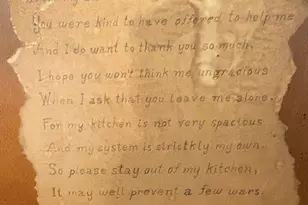 You were kind to have offered to help me
And I do want to thank you so much.
I hope you won't think me ungracious
When I ask that you leave me alone.
For my kitchen is not very spacious
And my system is strictkly my own.
So please stay out of my kitchen,
It may well prevent a few wars.